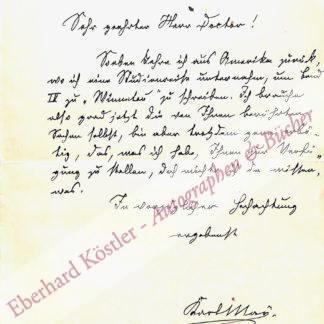 Sehr geehrter Herr Doctor!
Soeben kehre ich aus Amerika zurück,
wo ich eine Studienreise unternahm, um Band
IV zu „Winnetou" zu schreiben. Ich brauche
also grad jetzt die von Ihnen berührten
Sachen selbst, bin aber trotzdem gern
das, was ich habe, Ihnen zur Verfü-
gung zu stellen, doch nicht wissen,
was.
In vorzüglicher Hochachtung
ergebenst
Karl May.
Eberhard Köstler - Autographen & Bücher